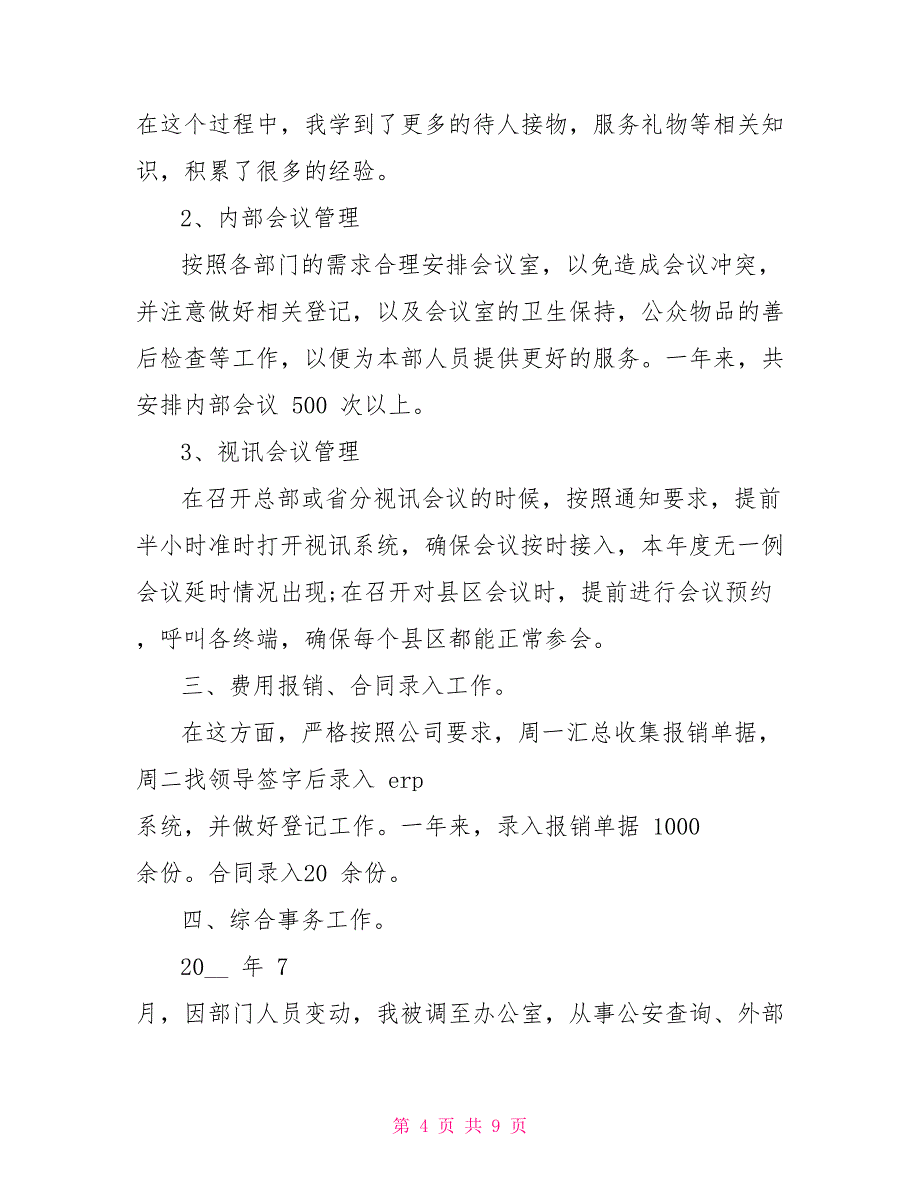 在这个过程中，我学到了更多的待人接物，服务礼物等相关知
识，积累了很多的经验。
2、内部会议管理
按照各部门的需求合理安排会议室，以免造成会议冲突，
并注意做好相关登记，以及会议室的卫生保持，公众物品的善
后检查等工作，以便为本部人员提供更好的服务。一年来，共
安排内部会议 500 次以上。
3、视讯会议管理
在召开总部或省分视讯会议的时候，按照通知要求，提前
半小时准时打开视讯系统，确保会议按时接入，本年度无一例
会议延时情况出现;在召开对县区会议时，提前进行会议预约
，呼叫各终端，确保每个县区都能正常参会。
三、费用报销、合同录入工作。
在这方面，严格按照公司要求，周一汇总收集报销单据，
周二找领导签字后录入 erp
系统，并做好登记工作。一年来，录入报销单据 1000
余份。合同录入20 余份。
四、综合事务工作。
20__ 年 7
月，因部门人员变动，我被调至办公室，从事公安查询、外部
第 4 页 共 9 页